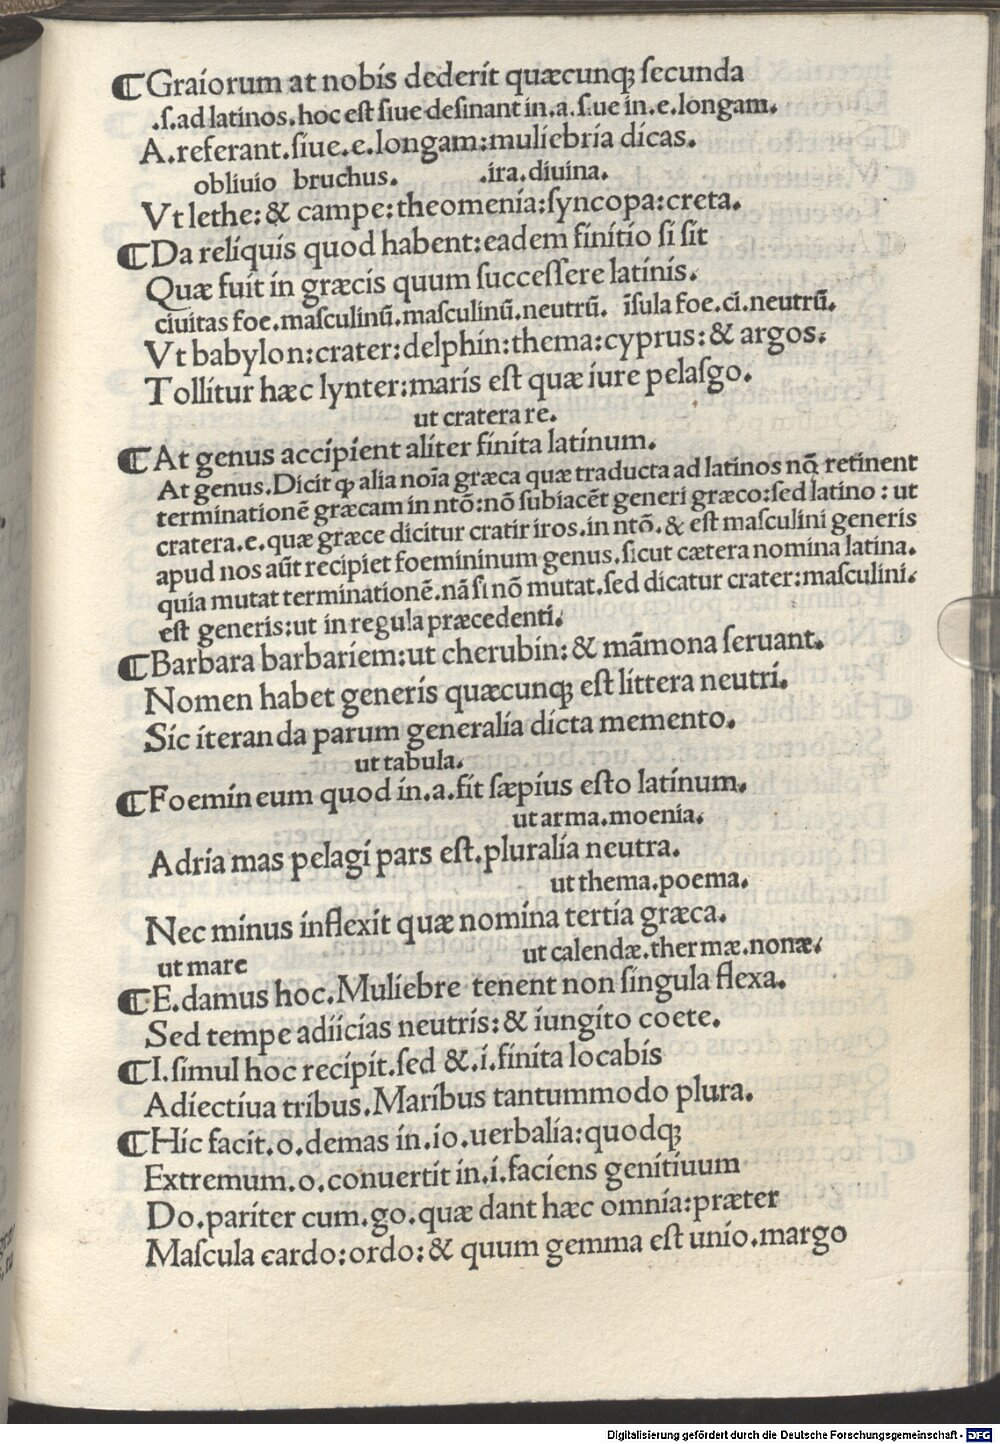 ¶Graiorum at nobis dederit quæcunqꝫ ſecunda
.ſ.ad latinos.hoc eſt ſiue deſinant in.a.ſ.ue in.e.longam.
A.referant.ſiue.e.longam:muliebria dicas.
obliuio bruchus. .ira.diuina.
Vt lethe:& campe:theomenia:ſyncopa:creta.
¶Da reliquis quod habent:eadem finitio ſi ſit
Quæ fuit in græcis quum ſucceſſere latinis.
ciuitas foe.maſculinũ.maſculinũ.neutrũ. ĩſula foe.ci.neutrũ.
Vt babylon:crater:delphin:thema:cyprus:& argos.
Tollitur hæc lynter:maris eſt quæ iure pelaſgo.
ut cratera re.
¶At genus accipient aliter finita latinum.
At genus.Dicit ꝙ alia noĩa græca quæ traducta ad latinos nõ retinent
terminationẽ græcam in ntõ:nõ ſubiacẽt generi græco:ſed latino : ut
cratera.e.quæ græce dicitur cratir iros.in ntõ.& eſt maſculini generis
apud nos aũt recipiet foemininum genus.ſicut cætera nomina latina.
quia mutat terminationẽ.nã ſi nõ mutat.ſed dicatur crater:maſculini.
eſt generis:ut in regula præcedenti.
¶Barbara barbariem:ut cherubin:& mãmona ſeruant.
Nomen habet generis quæcunqꝫ eſt littera neutri.
Sic iteranda parum generalia dicta memento.
ut tabula.
¶Foemineum quod in.a.fit ſæpius eſto latinum.
ut arma.moenia.
Adria mas pelagi pars eſt.pluralia neutra.
ut thema.poema.
Nec minus inflexit quæ nomina tertia græca.
ut mare ut calendæ.thermæ.nonæ.
¶E.damus hoc.Muliebre tenent non ſingula flexa.
Sed tempe adiicias neutris:& iungito coete.
¶I.ſimul hoc recipit.ſed &.i.finita locabis
Adiectiua tribus.Maribus tantummodo plura.
¶Hic facit.o.demas in.io.uerbalia:quodqꝫ
Extremum.o.conuertit in.i.faciens genitiuum
Do.pariter cum.go.quæ dant hæc omnia:præter
Maſcula cardo:ordo:& quum gemma eſt unio.margo
Digitalisierung gefördert durch die Deutsche Forschungsgemeinschaft - DFG